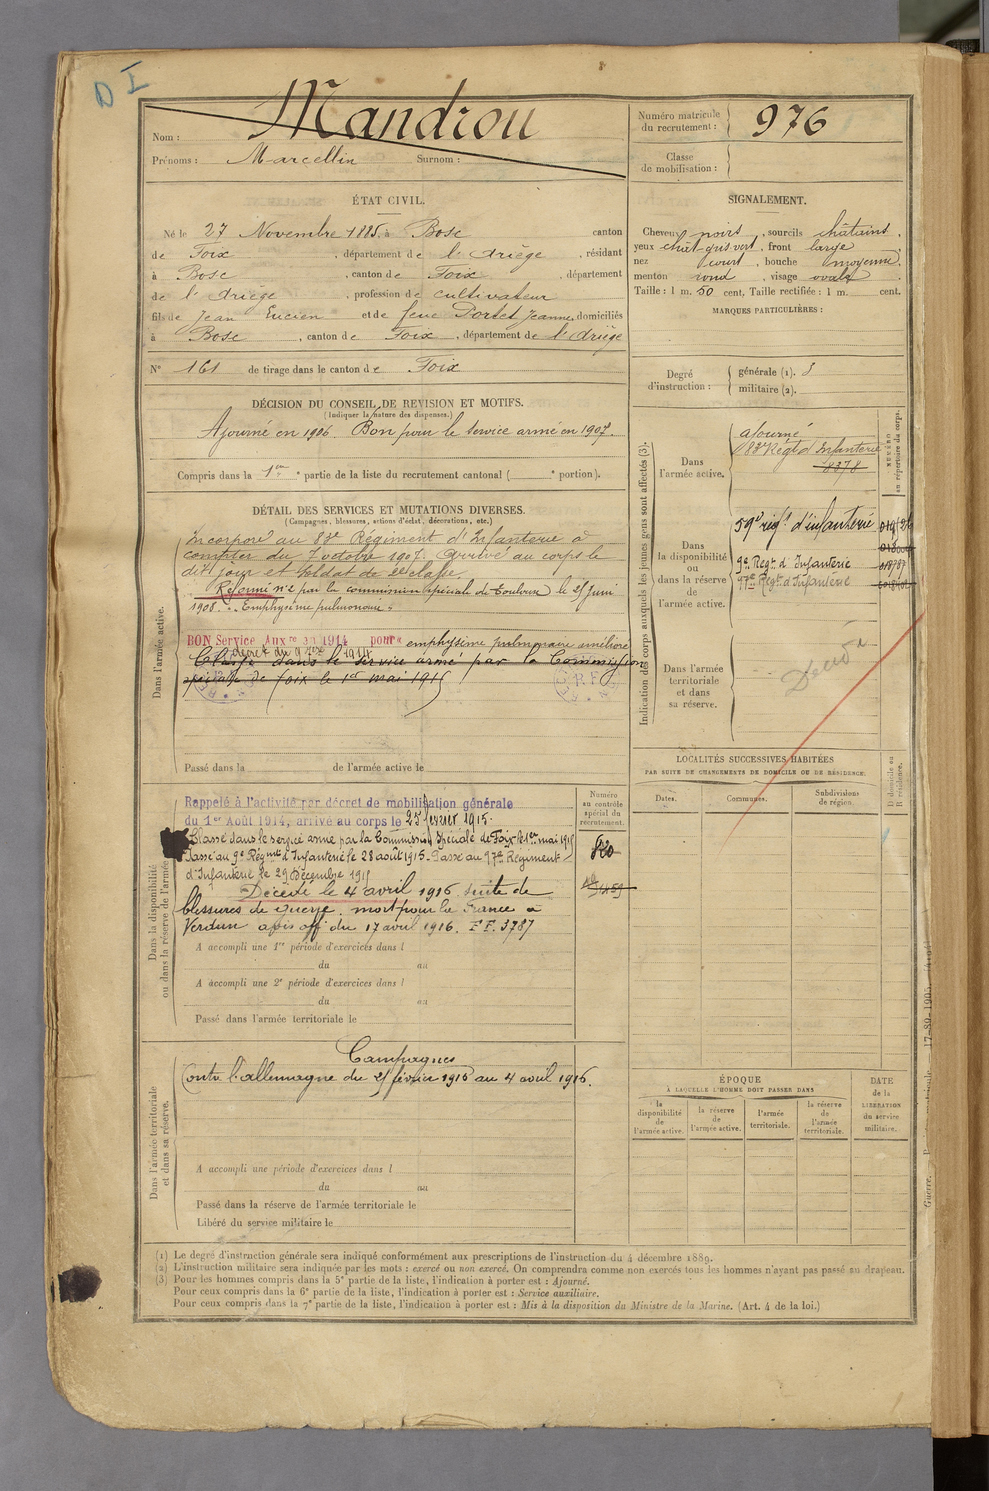 D I
Nom : Mandrou
Prénoms : Marcellin Surnom :
Numéro matricule du recrutement : 976
Classe de mobilisation :
ÉTAT CIVIL.
Né le 27 Novembre 1885, à Bosc canton
de Foix, département de l'Ariège, résidant
à Bosc, canton de Foix, département
de l'Ariège, profession de cultivateur
fils de Jean Lucien et de feue Portet Jeanne, domiciliés
à Bosc, canton de Foix, département de l'Ariège
N° 161 de tirage dans le canton de Foix
SIGNALEMENT.
Cheveux noirs, sourcils châtains,
yeux chât gris vert, front large
nez court, bouche moyenne,
menton rond, visage ovale
Taille : 1 m. 50 cent. Taille rectifiée : 1 m. cent.
MARQUES PARTICULIÈRES :
Degré d'instruction :
générale (1).
militaire (2).
DÉCISION DU CONSEIL DE REVISION ET MOTIFS.
(Indiquer la nature des dispenses.)
Ajourné en 1906 Bon pour le service armé en 1907.
Compris dans la 1re partie de la liste du recrutement cantonal ( e portion).
DÉTAIL DES SERVICES ET MUTATIONS DIVERSES.
(Campagnes, blessures, actions d'éclat, décorations, etc.)
Dans l'armée active.
Incorporé au 83e Régiment d'Infanterie à
compter du 7 octobre 1907. Arrivé au corps le
dit jour et soldat de 2e classe.
Réformé n° 2 par la commission spéciale de Toulouse le 25 juin
1908. Emphysème pulmonaire.
BON Service Auxre en 1914 pour emphysème pulmonaire amélioré
décret du 9 7bre 1914
Classé dans le service armé par la Commission
spéciale de Foix le 1er mai 1915
Passé dans la de l'armée active le
Indication des corps auxquels les jeunes gens sont affectés (3).
NUMÉRO au répertoire du corps.
Dans l'armée active.
ajourné
83e Régt d'Infanterie
8378
Dans la disponibilité ou dans la réserve de l'armée active.
59e régt d'infanterie
9e Regt d'Infanterie 018787
97e Regt d'Infanterie
Dans l'armée territoriale et dans sa réserve.
Décédé
LOCALITÉS SUCCESSIVES HABITÉES
PAR SUITE DE CHANGEMENTS DE DOMICILE OU DE RÉSIDENCE.
Dates. Communes. Subdivisions de région. D domicile ou R résidence.
Dans la disponibilité ou dans la réserve de l'armée
Numéro au contrôle spécial du recrutement.
Rappelé à l'activité par décret de mobilisation générale
du 1er Août 1914, arrivé au corps le 25 février 1915.
Classé dans le service armé par la Commission Spéciale de Foix le 1er mai 1915
Passé au 9e Régimt d'Infanterie le 28 août 1915. Passé au 97e Régiment
d'Infanterie le 29 Décembre 1915
Décédé le 4 avril 1916 suite de
blessures de guerre, mort pour la France à
Verdun avis off du 17 avril 1916. FF. 3787
A accompli une 1re période d'exercices dans l
du au
A accompli une 2e période d'exercices dans l
du au
Passé dans l'armée territoriale le
Dans l'armée territoriale et dans sa réserve.
Campagnes
Contre l'allemagne du 25 février 1915 au 4 avril 1916.
A accompli une période d'exercices dans l
du au
Passé dans la réserve de l'armée territoriale le
Libéré du service militaire le
ÉPOQUE
À LAQUELLE L'HOMME DOIT PASSER DANS
la disponibilité de l'armée active. la réserve de l'armée active. l'armée territoriale. la réserve de l'armée territoriale.
DATE de la LIBÉRATION du service militaire.
(1) Le degré d'instruction générale sera indiqué conformément aux prescriptions de l'instruction du 4 décembre 1889.
(2) L'instruction militaire sera indiquée par les mots : exercé ou non exercé. On comprendra comme non exercés tous les hommes n'ayant pas passé au drapeau.
(3) Pour les hommes compris dans la 5e partie de la liste, l'indication à porter est : Ajourné.
Pour ceux compris dans la 6e partie de la liste, l'indication à porter est : Service auxiliaire.
Pour ceux compris dans la 7e partie de la liste, l'indication à porter est : Mis à la disposition du Ministre de la Marine. (Art. 4 de la loi.)